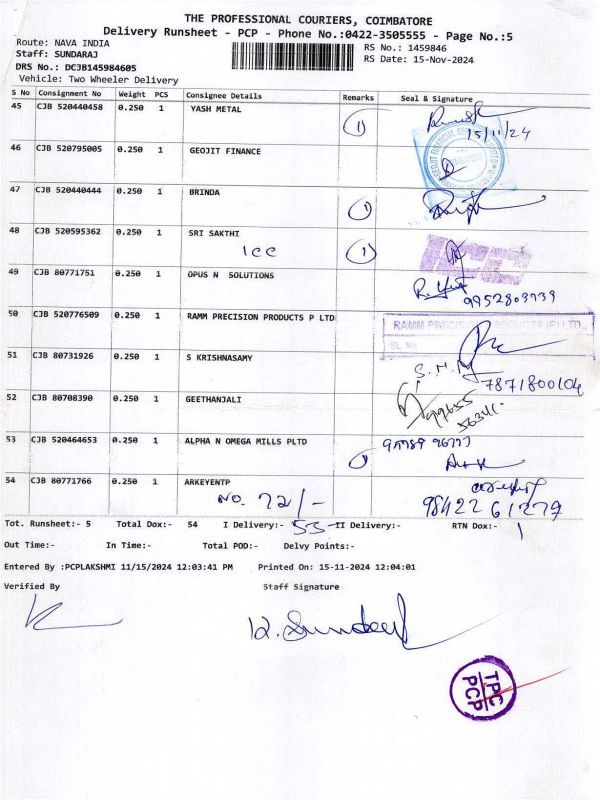 THE PROFESSIONAL COURIERS, COIMBATORE
Delivery Runsheet - PCP - Phone No.:0422-3505555 - Page No.:5
Route: NAVA INDIA
RS No.: 1459846
Staff: SUNDARAJ
RS Date: 15-Nov-2024
DRS No.: DCJB145984605
Vehicle: Two Wheeler Delivery
S No Consignment No Weight PCS Consignee Details Remarks Seal & Signature
45 CJB 520440458 0.250 1 YASH METAL 1
15/11/24
46 CJB 520795005 0.250 1 GEOJIT FINANCE
47 CJB 520440444 0.250 1 BRINDA 1
48 CJB 520595362 0.250 1 SRI SAKTHI 1
ICC
49 CJB 80771751 0.250 1 OPUS N SOLUTIONS
9952803939
50 CJB 520776509 0.250 1 RAMM PRECISION PRODUCTS P LTD
RAMM PRECISION PRODUCTS (P) LTD.,
SL No
51 CJB 80731926 0.250 1 S KRISHNASAMY
7871800104
52 CJB 80708390 0.250 1 GEETHANJALI
53 CJB 520464653 0.250 1 ALPHA N OMEGA MILLS PLTD
54 CJB 80771766 0.250 1 ARKEYENTP
NO. 72/-
98422 61279
Tot. Runsheet:- 5 Total Dox:- 54 I Delivery:- 53 II Delivery:- RTN Dox:- 1
Out Time:- In Time:- Total POD:- Delvy Points:-
Entered By :PCPLAKSHMI 11/15/2024 12:03:41 PM Printed On: 15-11-2024 12:04:01
Verified By Staff Signature
TPC
PCP